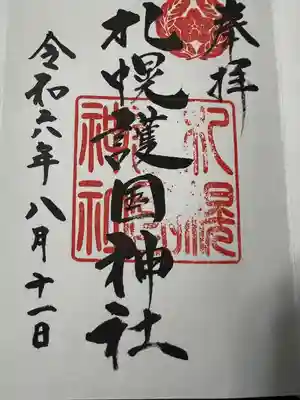 奉拝
札幌護国神社
令和六年八月十一日